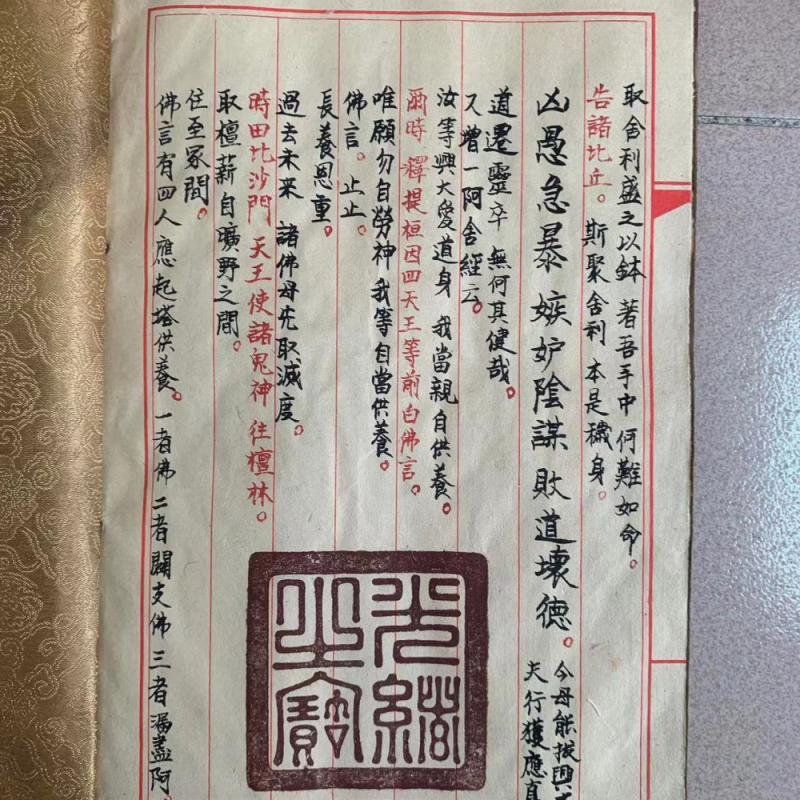 取舍利盛之以鉢 著吾手中 何難如命。
告諸比丘。 斯聚舍利 本是穢身。
凶愚急暴 嫉妒陰謀 敗道壞德。
今母能拔興
夫行獲應真
道遷靈卒 無何其健哉。
又增一阿舍經云。
汝等興大愛道身 我當親自供養。
爾時 釋提桓因四天王等前白佛言。
唯願勿自勞神 我等自當供養。
佛言。止止。
長養恩重。
過去未來 諸佛母先取滅度。
時田比沙門 天王使諸鬼神 往檀林。
取檀薪 自曠野之間。
住至冢間。
佛言有四人 應起塔供養。一者佛 二者闢支佛 三者漏盡阿
光緒之寶